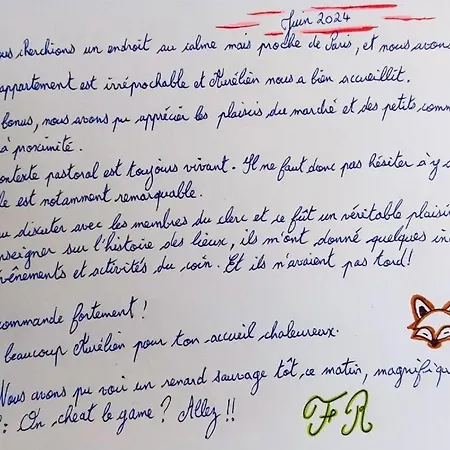 Juin 2024
ous cherchions un endroit au calme mais proche de Paris, et nous avons
appartement est irréprochable et Aurélien nous a bien accueillit.
bonus, nous avons pu apprécier les plaisirs du marché et des petits comm
à proximité.
ontexte pastoral est toujours vivant. Il ne faut donc pas hésiter à y a
le est notamment remarquable.
u discuter avec les membres du clerc et ce fût un véritable plaisir
nseigner sur l'histoire des lieux, ils m'ont donné quelques in
évênements et activités du coin. Et ils n'avaient pas tord!
commande fortement!
beaucoup Aurélien pour ton accueil chaleureux.
Nous avons pu voir un renard sauvage tôt ce matin, magnifiqu
: On cheat le game? Allez!!
FR